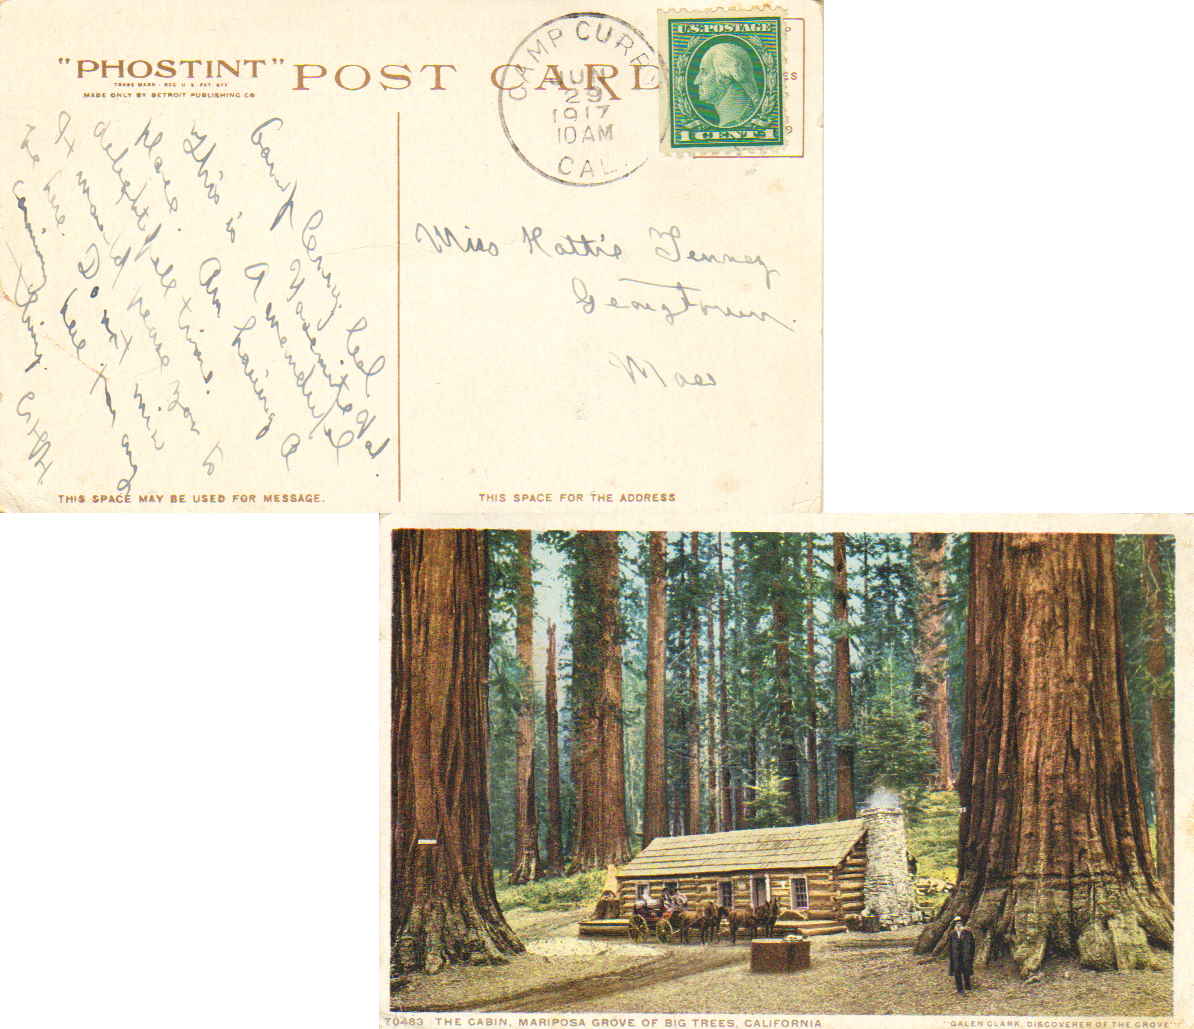 "PHOSTINT" POST CARD
TRADE MARK - REG. U. S. PAT. OFF.
MADE ONLY BY DETROIT PUBLISHING CO.
CAMP CURRY
JUN
29
1917
10 AM
CAL.
U.S. POSTAGE
1 CENT 1
Camp Curry Cal
Yosemite Val.
This is A wonderful
Place. Am having a
delightfull time.
you to
be here. Do not
Miss Hattie Tenney
Georgtown.
Mass
THIS SPACE MAY BE USED FOR MESSAGE.
THIS SPACE FOR THE ADDRESS
70483 THE CABIN, MARIPOSA GROVE OF BIG TREES, CALIFORNIA
"GALEN CLARK, DISCOVERER OF THE GROVE"